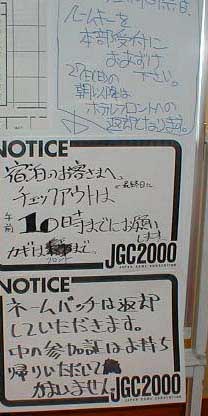 ルームキーを
本部受付に
おあずけ
下さい。
27日(日)の
朝以降は
ホテルフロントへの
返却となります。
NOTICE
宿泊のお客さまへ。
最終日に
チェックアウトは
午前10時までにお願い
します
カギは まで。
フロント
JGC2000
JAPAN GAME CONVENTION
NOTICE
ネームバッチは返却
していただきます。
中の参加証はお持ち
帰りいただいて
かまいません
JGC2000
JAPAN GAME CONVENTION